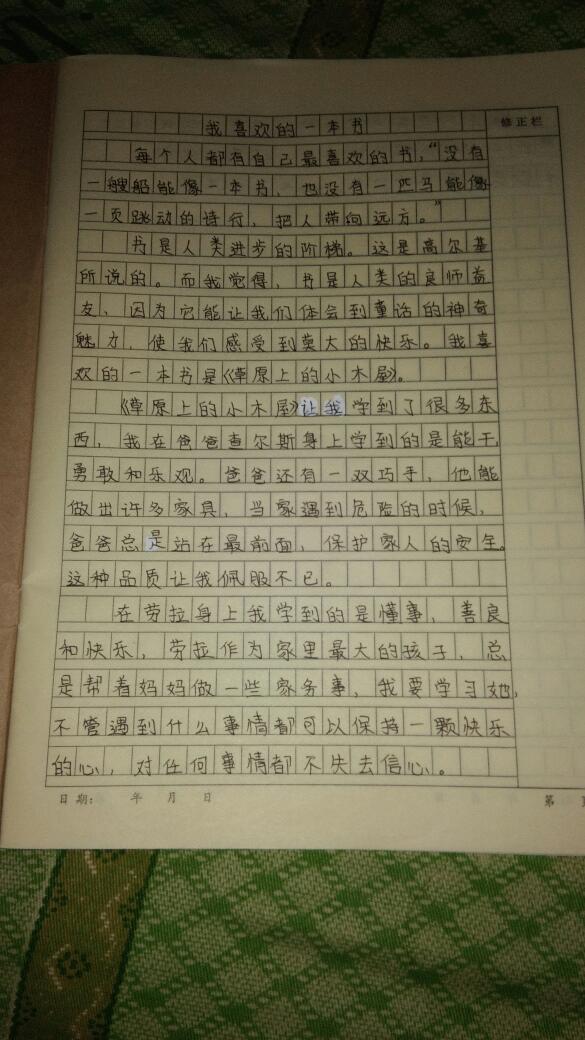 我喜欢的一本书
修正栏
每个人都有自己最喜欢的书，“没有
一艘船能像一本书，也没有一匹马能像
一页跳动的诗行，把人带向远方。”
书是人类进步的阶梯。这是高尔基
所说的。而我觉得，书是人类的良师益
友，因为它能让我们体会到童话的神奇
魅力，使我们感受到莫大的快乐。我喜
欢的一本书是《草原上的小木屋》。
《草原上的小木屋》让我学到了很多东
西，我在爸爸查尔斯身上学到的是能干，
勇敢和乐观。爸爸还有一双巧手，他能
做出许多家具，当家遇到危险的时候，
爸爸总是站在最前面，保护家人的安全。
这种品质让我佩服不已。
在劳拉身上我学到的是懂事，善良
和快乐，劳拉作为家里最大的孩子，总
是帮着妈妈做一些家务事，我要学习她，
不管遇到什么事情都可以保持一颗快乐
的心，对任何事情都不失去信心。
日期： 年 月 日
第